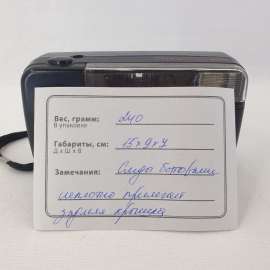 Вес, грамм: 240
В упаковке
Габариты, см: 15х9х7
Д х Ш х В
Замечания: Следы бытования
неплотно прилегает
задняя крышка